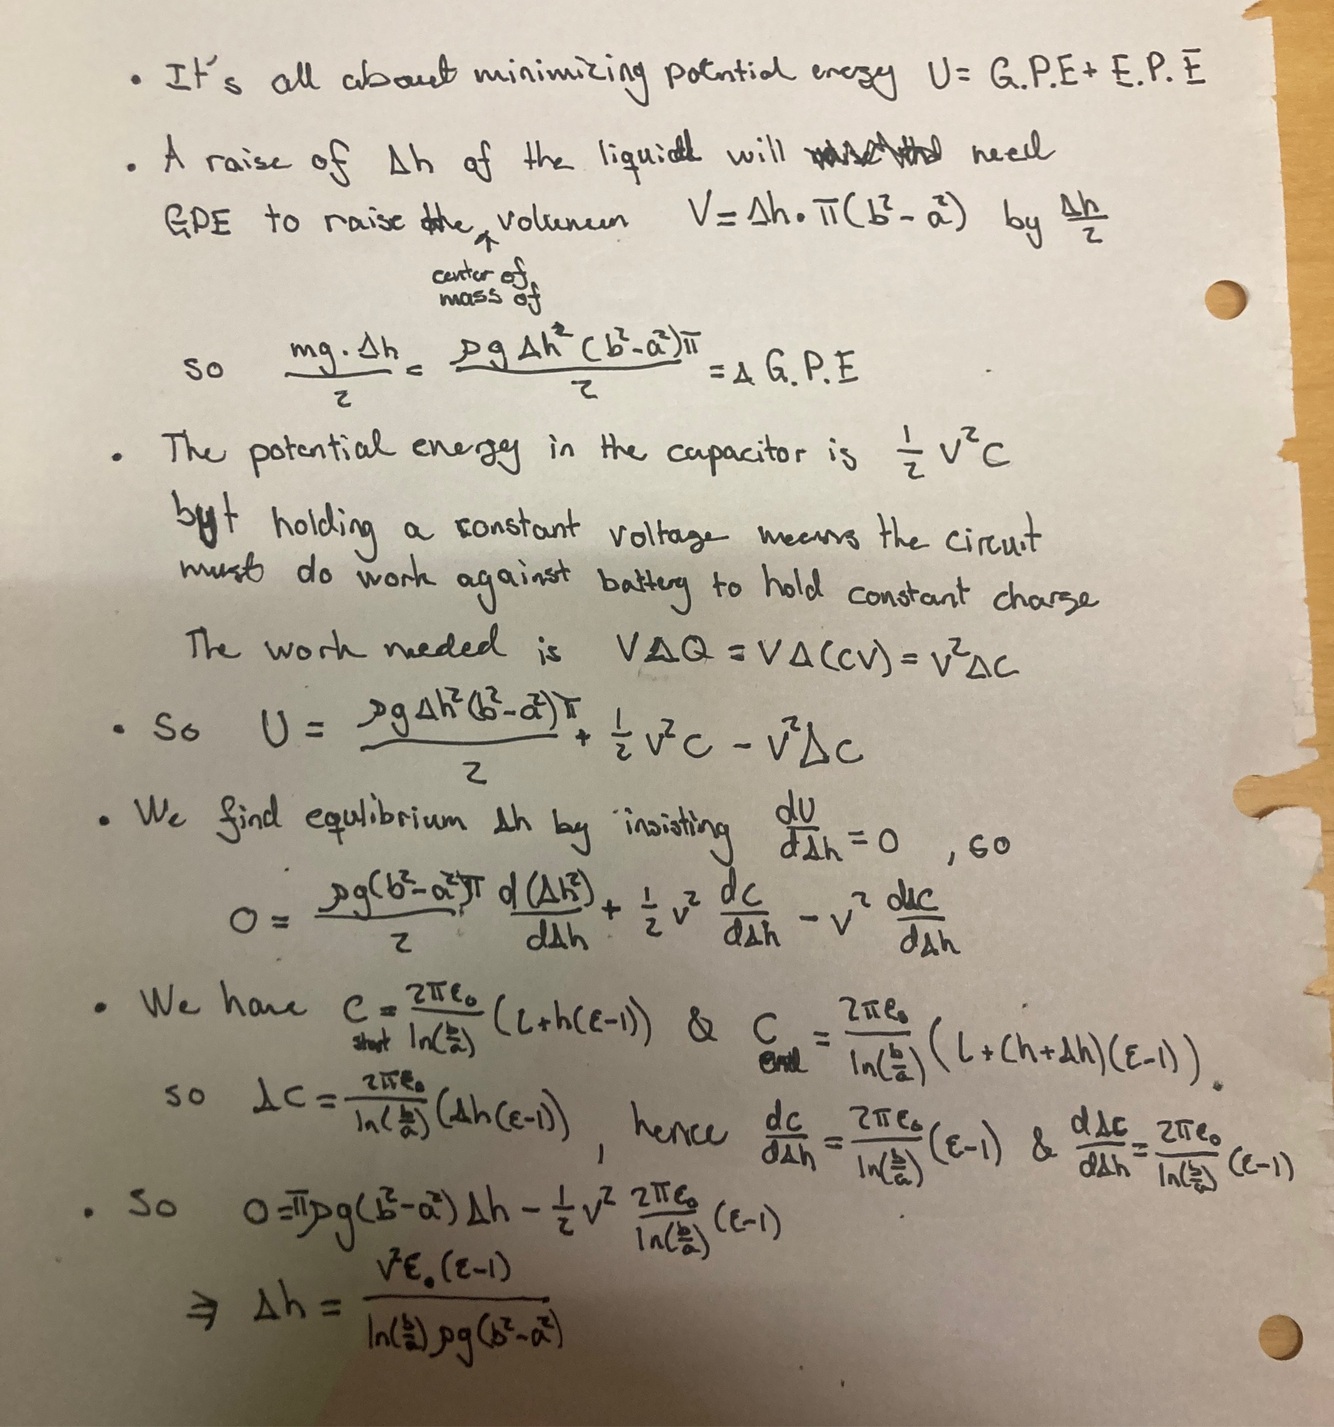 • It's all about minimizing potential energy U = G.P.E + E.P.E
• A raise of Δh of the liquid will need
GPE to raise the volumen V = Δh · π(b² - a²) by Δh/2
center of
mass of
so mg·Δh/2 = ρgΔh²(b²-a²)π/2 = Δ G.P.E
• The potential energy in the capacitor is 1/2 V²C
but holding a constant voltage means the circuit
must do work against battery to hold constant charge
The work needed is VΔQ = VΔ(CV) = V²ΔC
• So U = ρgΔh²(b²-a²)π/2 + 1/2 V²C - V²ΔC
• We find equlibrium Δh by insisting dU/dΔh = 0, so
0 = ρg(b²-a²)π/2 d(Δh²)/dΔh + 1/2 V² dC/dΔh - V² dΔC/dΔh
• We have C start = 2πε₀/ln(b/a) (L+h(ε-1)) & C end = 2πε₀/ln(b/a) (L+(h+Δh)(ε-1)).
so ΔC = 2πε₀/ln(b/a) (Δh(ε-1)), hence dC/dΔh = 2πε₀/ln(b/a) (ε-1) & dΔC/dΔh = 2πε₀/ln(b/a) (ε-1)
• So 0 = πρg(b²-a²)Δh - 1/2 V² 2πε₀/ln(b/a) (ε-1)
⇒ Δh = V²ε₀(ε-1)/ln(b/a)ρg(b²-a²)